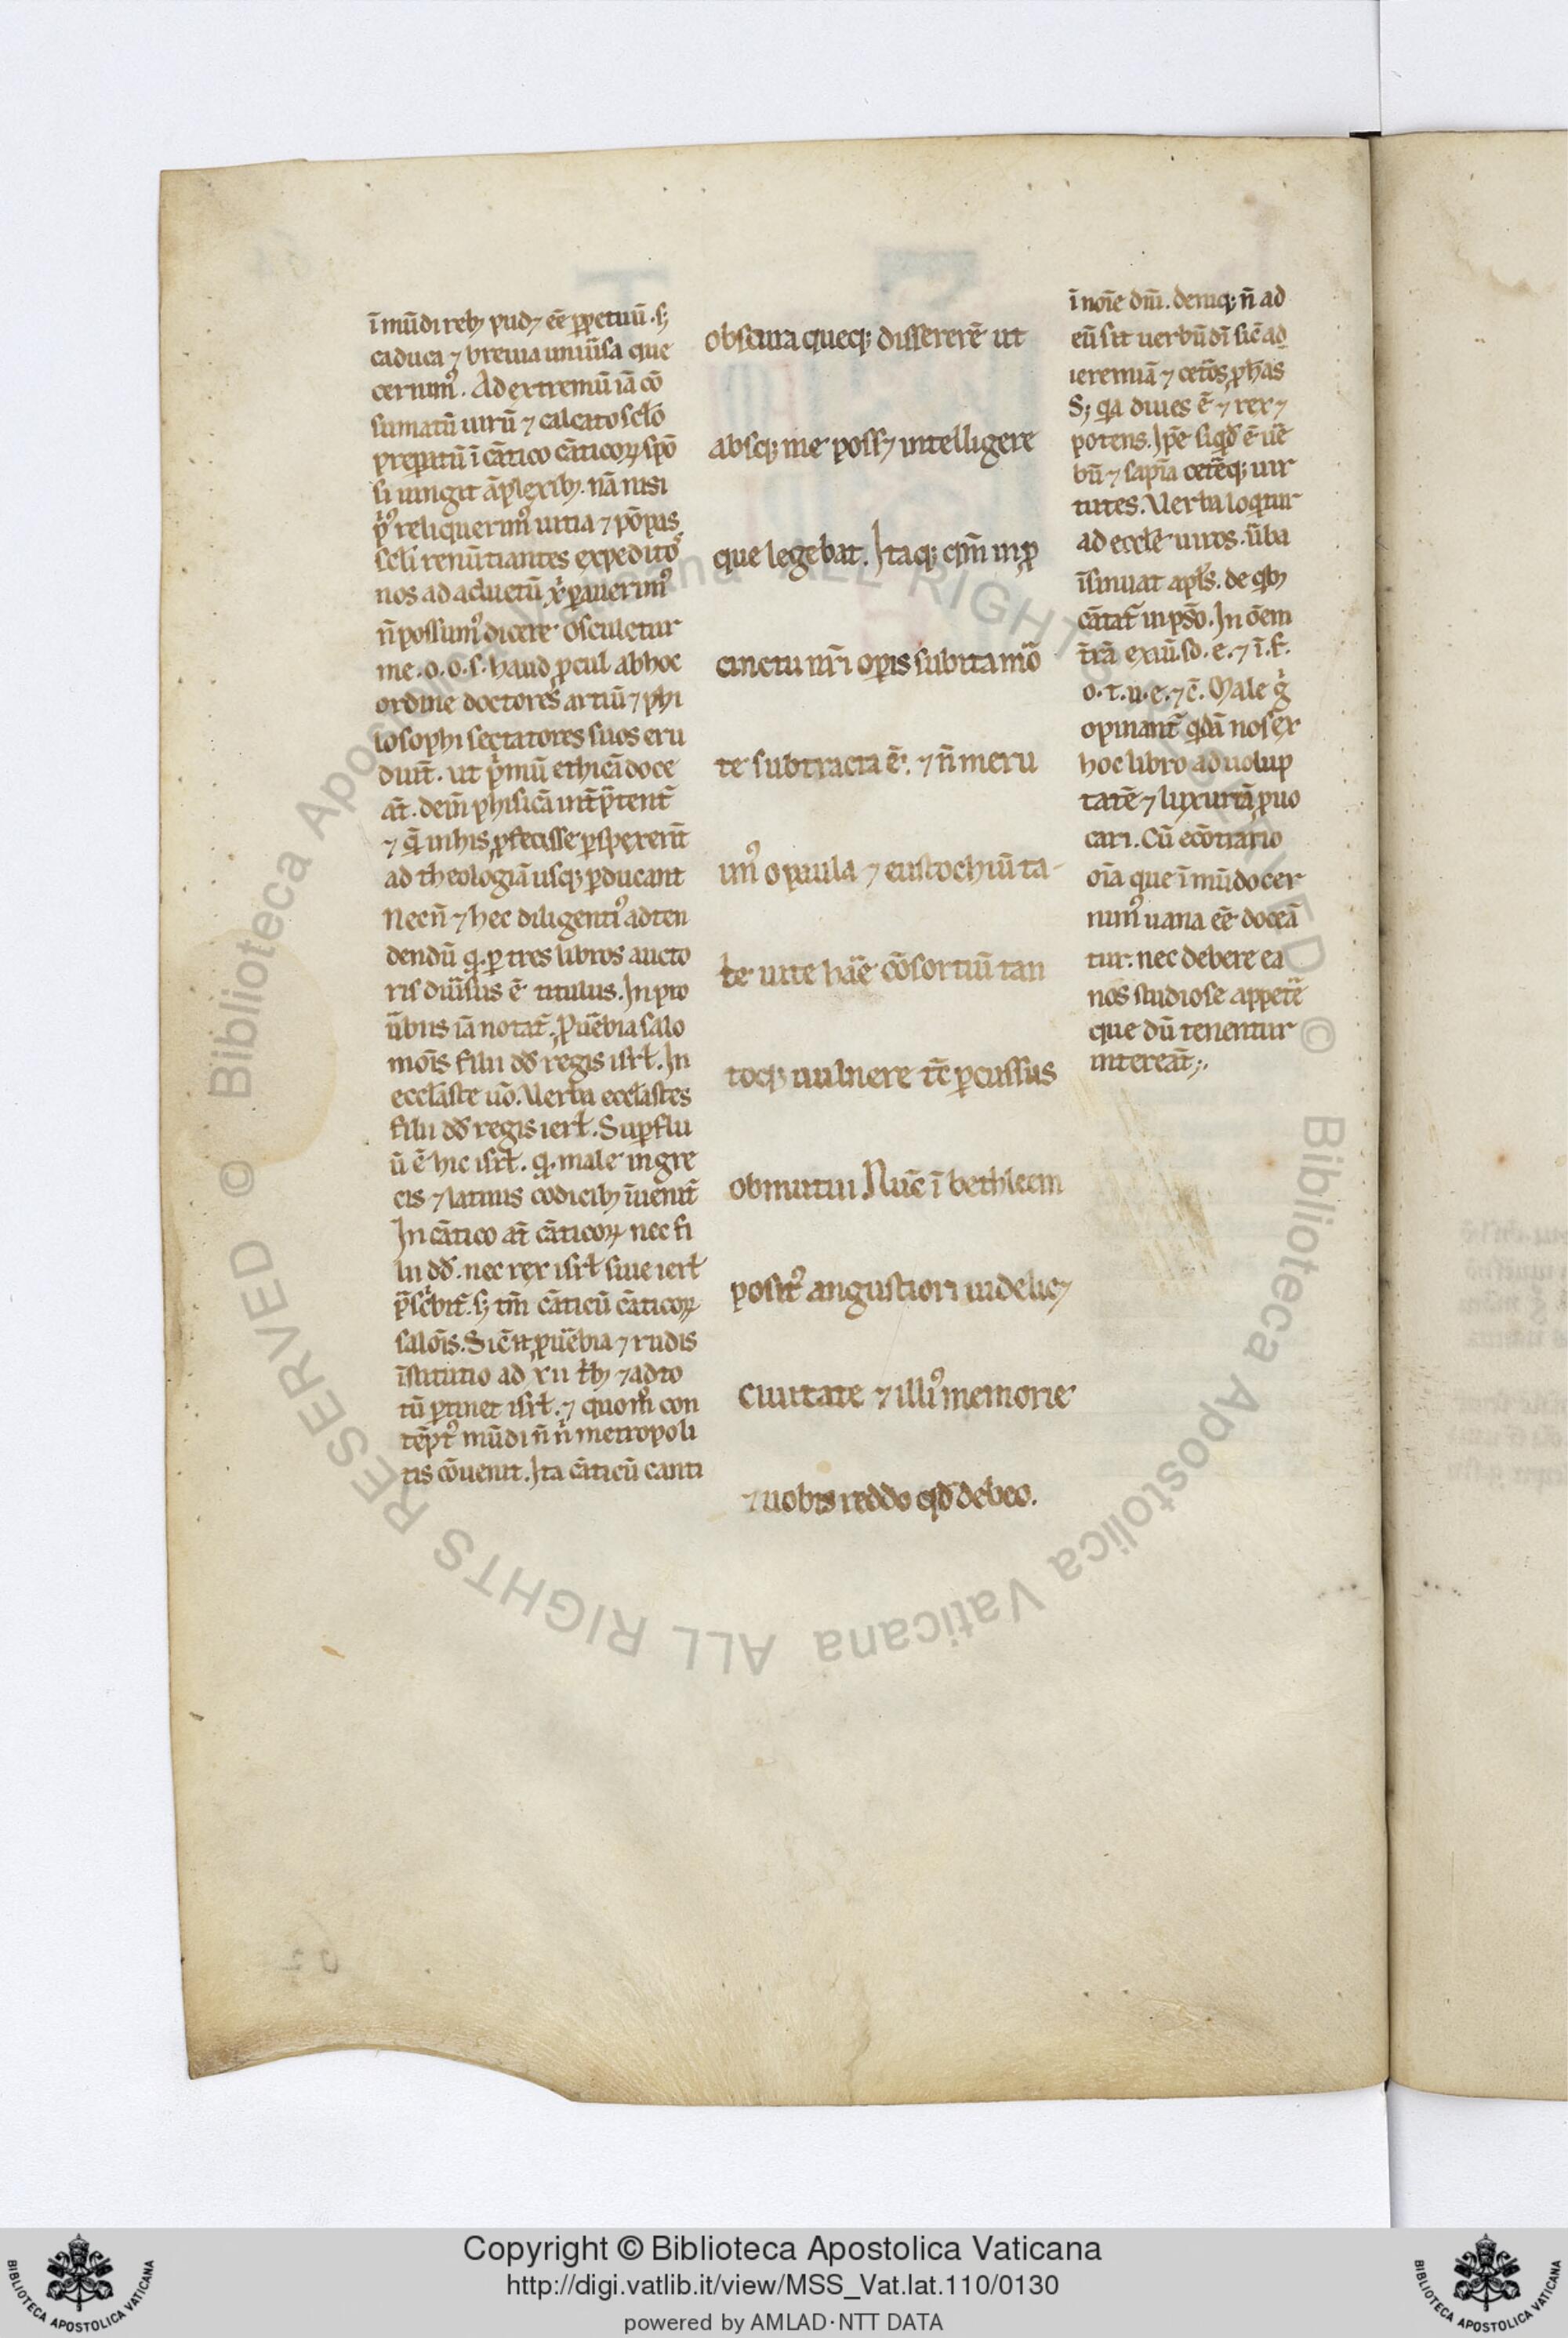 ī mūdi reb; pud; eē ꝑpetuū. s;
caduca ⁊ breuia uniūsa que
cernim᷒. Ad extremū iā cō
sumatū uirū ⁊ calcato sclo
preparatū ī cātico cāticoꝝ spō
si iungit āplexib;. nā nisi
p᷒ reliquerim᷒ uitia ⁊ pōpas
scli renūtiantes expeditos
nos ad aduētū xp̄i p̄auerim᷒
n̄ possum᷒ dicere osculetur
me. o. o. s. haud ꝓcul ab hoc
ordine doctores artiū ⁊ phi
losophi sectatores suos eru
diūt. ut pⁱmū ethicā doce
āt. dein̄ phisicā int̄p̄tent̄
⁊ q̄ in his ꝓfecisse ꝑspexerit̄
ad theologiā usq; ꝑducant
Necn̄ ⁊ hec diligenti᷒ adten
dendū q. ꝑ tres libros aucto
ris diūsus ē titulus. In pro
ūbiis iā notat̄. Ꝓuēbia salo
moīs filii dd̄ regis isrl̄. In
eccl̄aste uō. Uerba eccl̄astes
filii dd̄ regis ierl̄. Suꝑflu
ū ē hic isrl̄. q. male in gre
cis ⁊ latinis codicib; īuenit̄
In cātico at̄ cāticoꝝ nec fi
lii dd̄. nec rex isrl̄ siue ierl̄
p̄scⁱbit̄. s; tm̄ cāticū cāticoꝝ
salōis. Sic̄ n̄ ꝓuēbia ⁊ rudis
īstitutio ad xii tb; ⁊ ad to
tū ꝑtinet isrl̄. ⁊ quom̊ con
tēpt᷒ mūdi n̄ nⁱ metropoli
tis cōuenit. Ita cāticū canti
obscura queq; dissererē ut
absq; me poss; intelligere
que legebat. Itaq; qm̄ in ꝓ
cinctu nr̄i oꝑis subita mō
te subtracta ē. ⁊ n̄ meru
im᷒ o paula ⁊ eustochiū ta-
le uite hāē cōsortiū tan
toq; uulnere tc̄ ꝑcussus
obmutui Nūc ī bethleem
posit᷒ angustiori uidelic;
ciuitate ⁊ illi᷒ memorie
⁊ uobis reddo qd̄ debeo.
ī noīe dn̄i. deniq; n̄ ad
eū fit uerbū dī sic̄ ad
ieremiā ⁊ cet̄os ꝓphas
S; qa diues ē ⁊ rex ⁊
potens. Ip̄e siqd̄ ē uē
bū ⁊ sapīa cet̄eq; uir
tutes. Uerba loqtur
ad eccl̄e uiros. ūba
īsinuat apl̄s. de qb;
cātat̄ in ps̄o. In oēm
t̄rā exiū. so. e. ⁊ ī. f.
o. t. u. e. ⁊ c̄. Male g̊
opinant̄ qdā nos ex
hoc libro ad uolup
tatē ⁊ luxuriā ꝓuo
cari. Cū ecōtrario
oīa que ī mūdo cer
nim᷒ uana eē doceā
tur. nec debere ea
nos studiose appetē
que dū tenentur
intereāt;.
BIBLIOTECA APOSTOLICA VATICANA
Copyright © Biblioteca Apostolica Vaticana
http://digi.vatlib.it/view/MSS_Vat.lat.110/0130
powered by AMLAD·NTT DATA
BIBLIOTECA APOSTOLICA VATICANA
© Biblioteca Apostolica Vaticana ALL RIGHTS RESERVED © Biblioteca Apostolica Vaticana ALL RIGHTS RESERVED